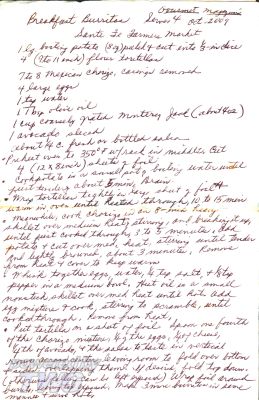 Gourmet Magazine
Breakfast Burritos Serves 4 Oct. 2009
Santa Fe Farmers Market
1 lg boiling potato (8 oz) peeled & cut into ½-in dice
4 (9 to 11 inch) flour tortillas
7 to 8 Mexican chorizo, casings removed
4 large eggs
1 T water
1 Tbsp olive oil
1 cup coarsely grated Monterey Jack (about 4 oz)
1 avocado sliced
about ½ c. fresh or bottled salsa
Preheat oven to 350°F w/ rack in middle. Cut
4 (12 x 8 inch) sheets of foil.
Cook potato in a small pot of boiling water until
just tender, about 5 min, Drain.
Wrap tortillas tightly in a sheet of foil &
warm in oven until heated through, 10 to 15 min
Meanwhile, cook chorizo in an 8-inch heavy
skillet over medium heat, stirring and breaking it up,
until just cooked through, 3 to 5 minutes, add
potato & cook over med. heat, stirring until tender
and lightly browned, about 3 minutes, Remove
from heat & cover to keep warm
Whisk together eggs, water, ¼ tsp salt & ⅛ tsp
pepper in a medium bowl. Heat oil in a small
nonstick skillet over med heat until hot. add
egg mixture & cook, stirring to scramble, until
cooked through. Remove from heat,
Put tortillas on a sheet of foil spoon one fourth
of the chorizo mixture, ¼ of the eggs, ¼ of cheese,
¼ of avocado & the salsa to taste in vertical
leaving room to fold over bottom
overlapping them if desired, fold top down.
can be left exposed) Wrap foil around
Make 3 more burritos in same
manner & serve hot.